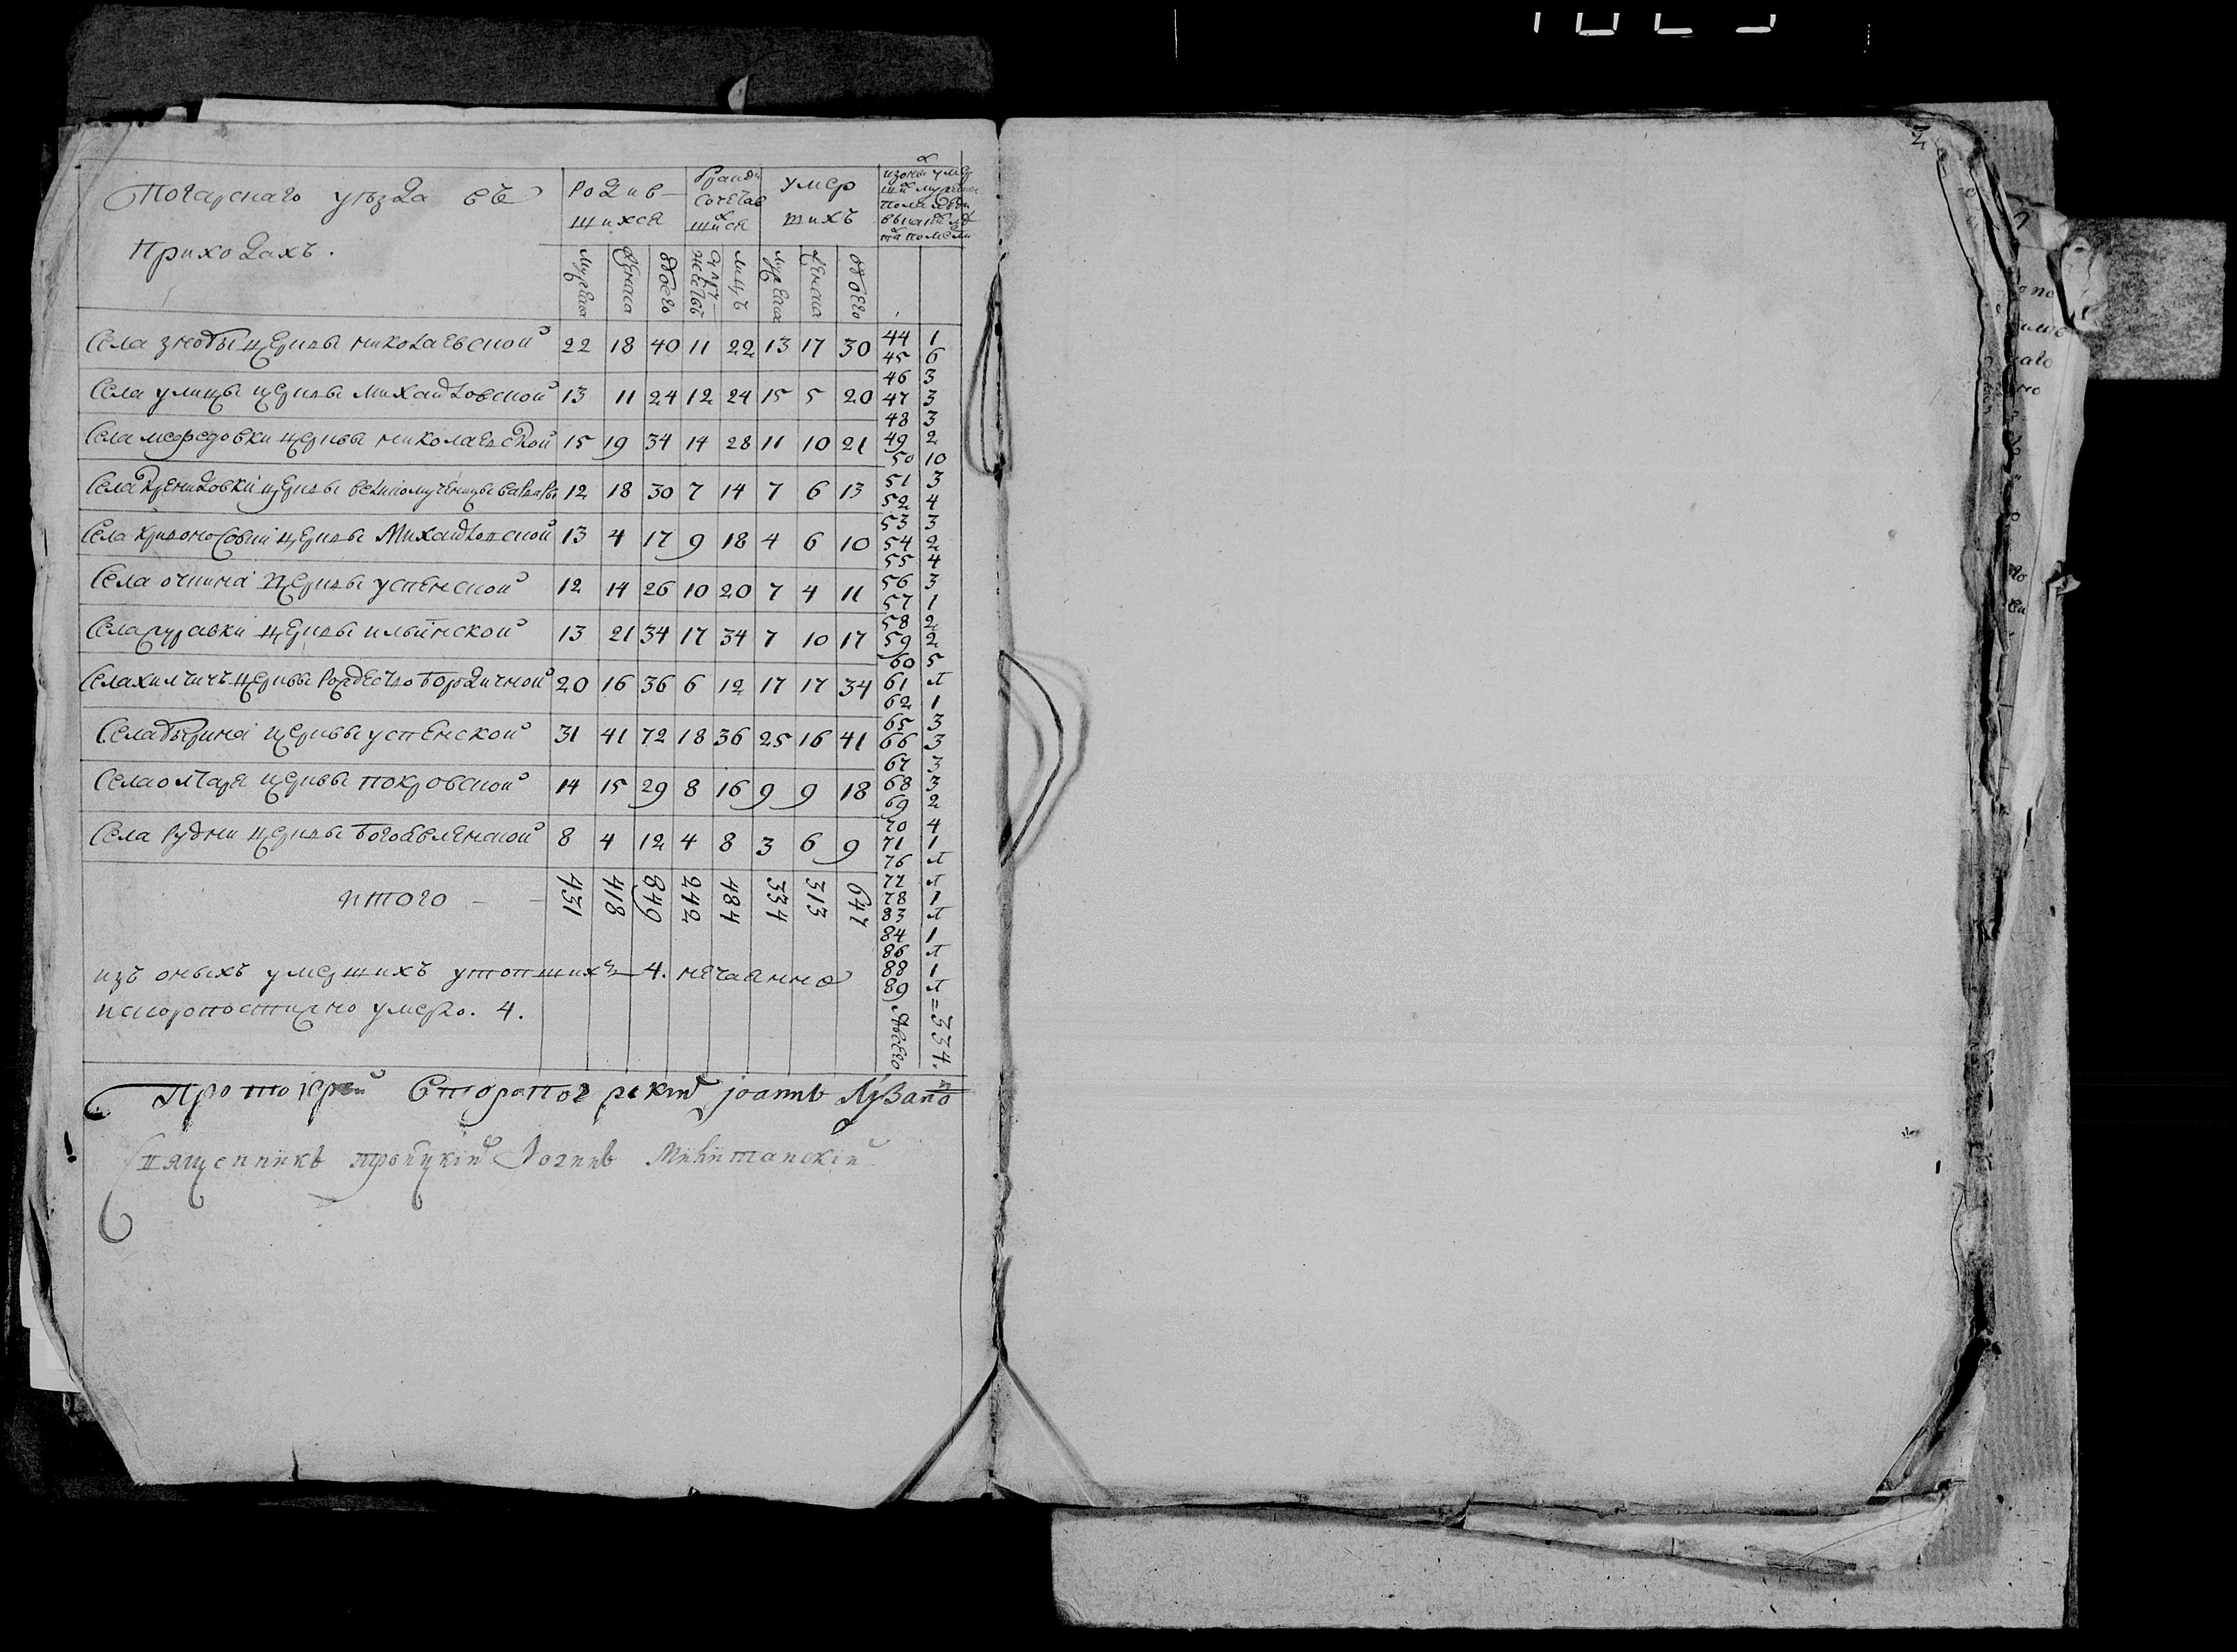 Погарскаго уѣзда въ
Приходахъ.
Родив-
шихся
бракомъ
сочетав
шихся
умер
шихъ
мужеска
женска
обоего
супружествъ
лицъ
мужеска
женска
обоего
Села знобы церквы николаевской 22 18 40 11 22 13 17 30
Села улицы церквы михайловской 13 11 24 12 24 15 5 20
Села мефедовки церквы николаевской 15 19 34 14 28 11 10 21
Села церквы великомученицы варвары 12 18 30 7 14 7 6 13
Села кривоносовки церквы михайловской 13 4 17 9 18 4 6 10
Села очкина церквы успенской 12 14 26 10 20 7 4 11
Села журавки церквы ильинской 13 21 34 17 34 7 10 17
Села хилчичъ церквы рождество богородичной 20 16 36 6 12 17 17 34
Села бырина церквы успенской 31 41 72 18 36 25 16 41
Села олтаря церквы покровской 14 15 29 8 16 9 9 18
Села рудни церквы богоявленской 8 4 12 4 8 3 6 9
итого - - 431 418 849 242 484 334 313 647
изъ оныхъ умершихъ утопшихъ 4. нечаянно
искоропостижно умерло. 4.
44 1
45 6
46 3
47 3
48 3
49 2
50 10
51 3
52 4
53 3
54 2
55 4
56 3
57 1
58 2
59 2
60 5
61 л
62 1
65 3
66 3
67 3
68 3
69 2
70 4
71 1
76 л
77 л
78 1
83 л
84 1
86 л
88 1
89 л
всего = 334.
Протоіерей Iоаннъ
Священникъ троицкій Iоаннъ